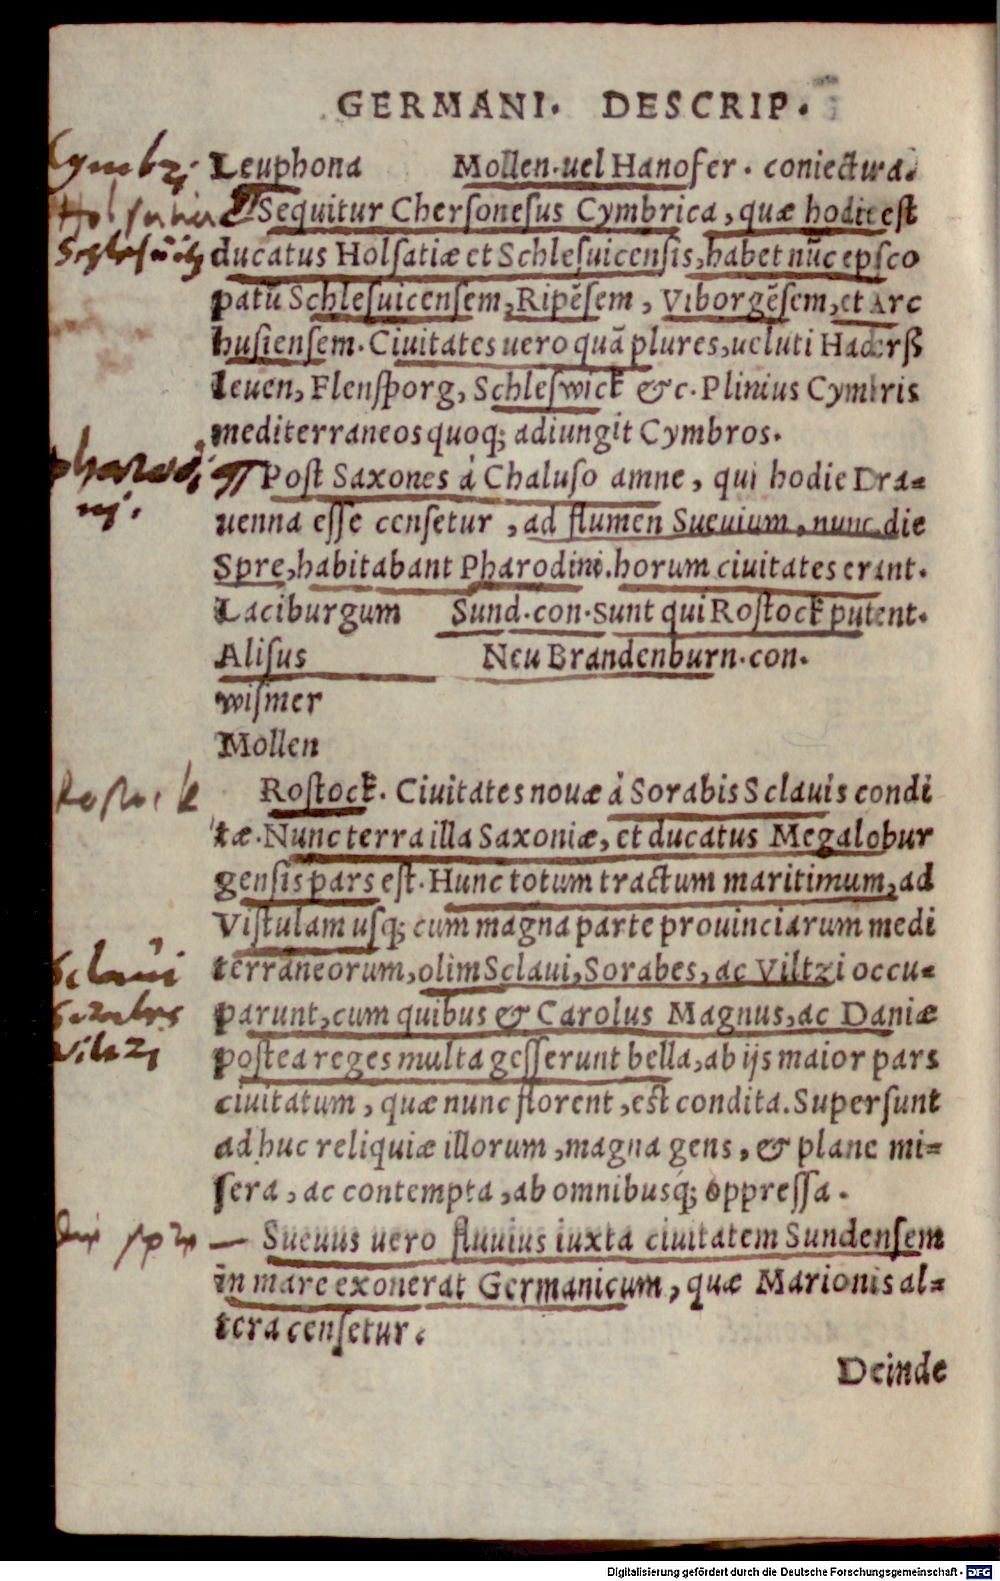 GERMANI. DESCRIP.
Leuphona Mollen.uel Hanofer. coniectura.
¶ Sequitur Chersonesus Cymbrica, quæ hodie est
ducatus Holsatiæ et Schlesuicensis, habet nūc epsco
patū Schlesuicensem, Ripēsem, Viborgēsem, et Arc
husiensem. Ciuitates uero quā plures, ueluti Haderß
leuen, Flensporg, Schleswick &c. Plinius Cymbris
mediterraneos quoq; adiungit Cymbros.
¶ Post Saxones à Chaluso amne, qui hodie Dra=
uenna esse censetur, ad flumen Sueuium, nunc die
Spre, habitabant Pharodini. horum ciuitates erant.
Laciburgum Sund.con.Sunt qui Rostock putent.
Alisus Neu Brandenburn.con.
wismer
Mollen
Rostock. Ciuitates nouæ à Sorabis Sclauis condi
tæ. Nunc terra illa Saxoniæ, et ducatus Megalobur
gensis pars est. Hunc totum tractum maritimum, ad
Vistulam usq; cum magna parte prouinciarum medi
terraneorum, olim Sclaui, Sorabes, ac Viltzi occu=
parunt, cum quibus & Carolus Magnus, ac Daniæ
postea reges multa gesserunt bella, ab ijs maior pars
ciuitatum, quæ nunc florent, est condita. Supersunt
adhuc reliquiæ illorum, magna gens, & plane mi=
sera, ac contempta, ab omnibusq; oppressa.
Sueuus uero fluuius iuxta ciuitatem Sundensem
in mare exonerat Germanicum, quæ Marionis al=
tera censetur.
Deinde
Cymbri
Holsatia
pharodi
ni.
Rostock
Sclaui
Sorabes
Viltzi
Digitalisierung gefördert durch die Deutsche Forschungsgemeinschaft - DFG